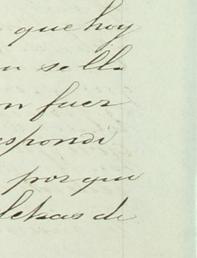 que hoy
su sello
on fuer
espondi
porque
letras de